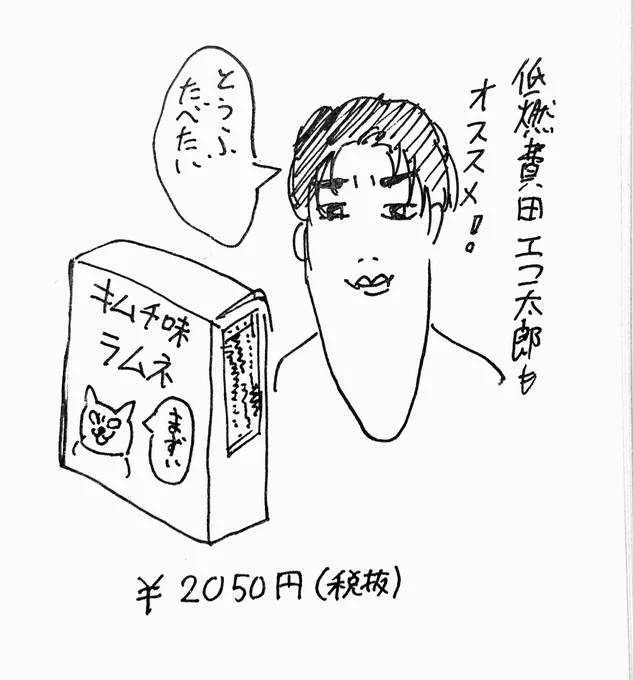 低燃費田エコ太郎も
オススメ!!
とうふ
たべたい
キムチ味
ラムネ
まずい
¥2050円(税抜)